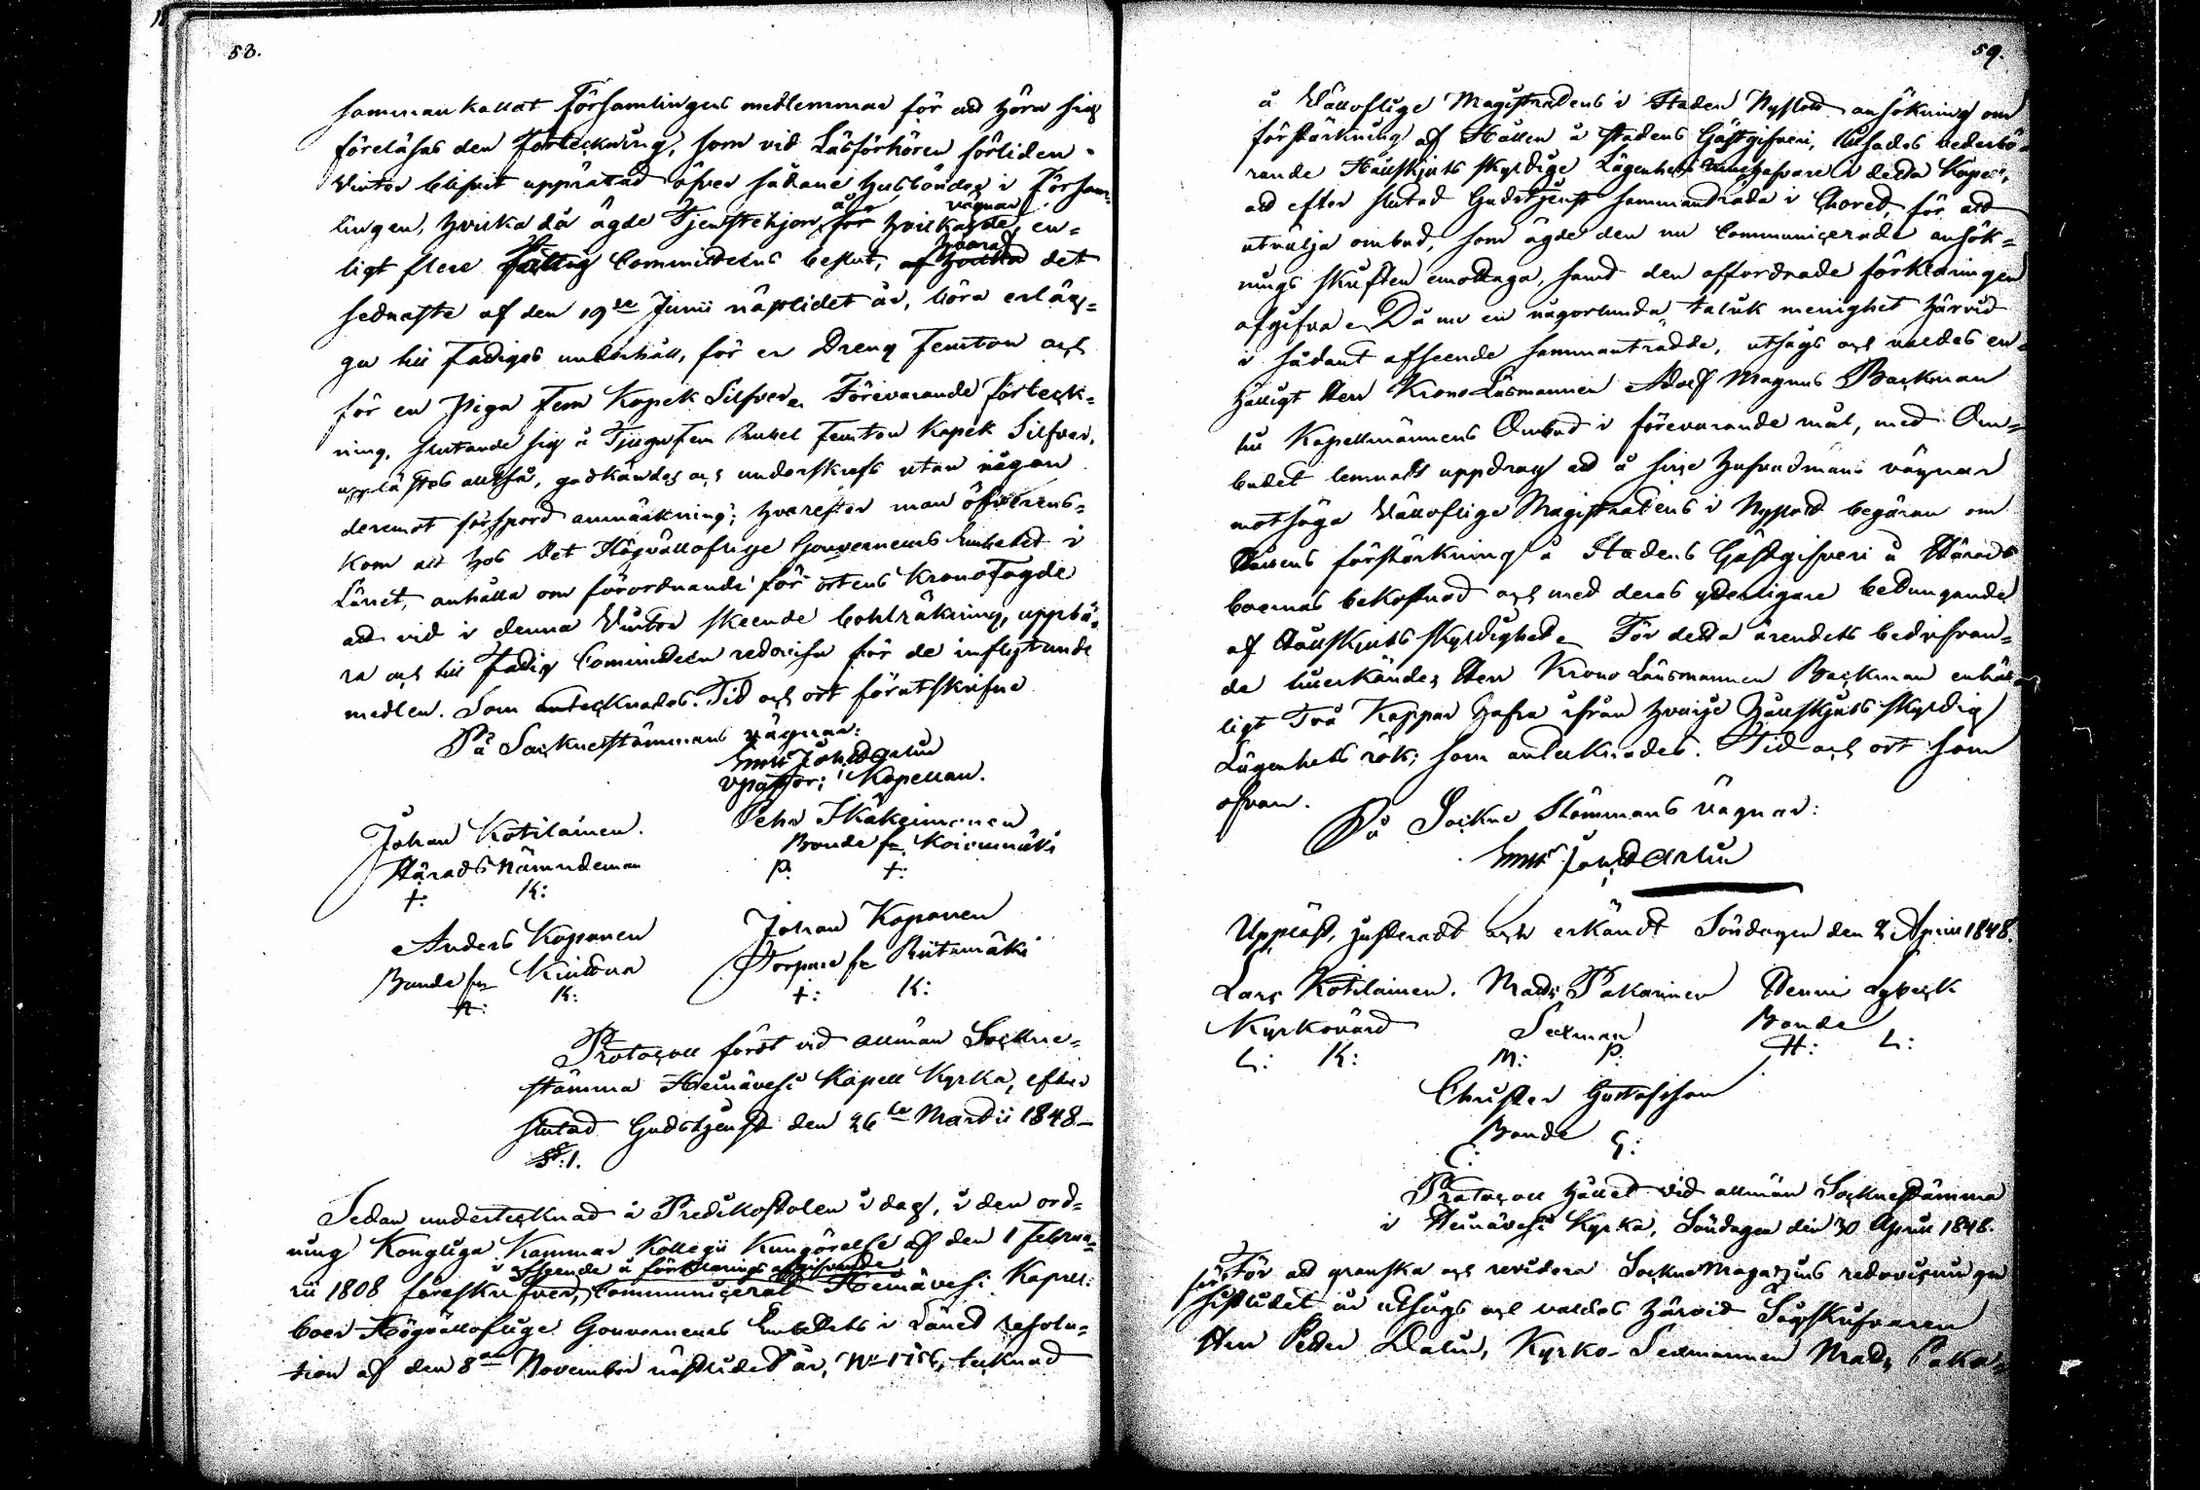 58.
sammankallat Församlingens medlemmar för att höra sig
föreläsas den Förteckning, som vid Läsförhören förliden
Vinter blifvit upprättad öfver sådane husbönder i Församlingen,
hvilka då ägde Tjenstehjon, för å hvilkas vägnar de, en=
ligt flere Fattig Committéens beslut, af hvilka hvaraf det
sednaste af den 19de Junii nästlidet år, böra erläg=
ga till Fattiges underhåll, för en Dreng Femton och
för en Piga Fem Kopek Silfver. Förevarande Förteck=
ning, slutande sig å Tjugufem Rubel Femton Kopek Silfver,
upplästes alltså, godkändes och underskrefs utan någon
deremot försport anmärkning; hvarefter man öfverens=
kom att hos Det Högvällofliga Gouverneurs Embetet i
Länet, anhålla om förordnande för ortens Kronofogde
att vid i denna Vinter skeende bohlräkning, uppbä=
ra och till Fattig Committéen redovisa för de inflytande
medlen. Som antecknades. Tid och ort förutskrifne
På Sockenstämmans vägnar:
Joh: Dalin
Vpastor: Kapellan.
Johan Kotilainen.
Härads Nämndeman
+: K:
Pehr
Bonde fr.
P. +:
Anders Kaponen
Bonde fr
A: K:
Johan Kaponen
Torpare fr Riitamäki
+: K:
Protocoll fördt vid allmän Sockne=
stämma Heinävesi Kapell Kyrka, efter
slutad Gudstjenst den 26te Martii 1848.
§: 1.
Sedan undertecknad å Predikostolen i dag, i den ord=
ning Kongliga Kammar Kollegii Kungörelse af den 1 Februa=
i afseende å förklarings afgifvande
rii 1808 föreskrifver, communicerat Heinävesi Kapell=
boer Högvällofliga Gouverneurs Embetets i Länet resolu=
tion af den 8de November nästlidet år, No 1756, tecknad
59.
å Vällofliga Magistratens i Staden Nyslott ansökning om
förstärkning af Hållen å stadens Gästgifveri, lystes vederbö=
rande Hållskjuts skyldige Lägenhets innehafvare i detta Kapell,
att efter slutad Gudstjenst sammanträda i Choret, för att
utvälja ombud, som ägde den nu Communicerade ansök=
nings skriften emottaga, samt den affordrade förklaringen
afgifva. Då nu en någorlunda talrik menighet härvid
i sådant afseende sammanträdde, utsågs och valdes en=
hälligt Herr Krono Länsmannen Adolf Magnus Backman
till Kapellmännens Ombud i förevarande mål, med Om=
budet lemnadt uppdrag att å sine hufvudmäns vägnar
motsäga Vällofliga Magistratens i Nyslott begäran om
Hållens förstärkning å Stadens Gästgifveri å Härads
boernas bekostnad och med deras ytterligare betungande
af Hållskjuts skyldighet. För detta ärendets bedrifvan=
de tillerkändes Herr Krono Länsmannen Backman enhäl=
ligt Två Kappar Hafra ifrån hvarje Hållskjuts skyldig
Lägenhets rök; som antecknades. Tid och ort som
ofvan.
På Sockne Stämmans vägnar:
Joh: Dalin
Uppläst, justeradt och erkändt Söndagen den 2 April 1848.
Lars Kotilainen. Mats Pakarinen Henric Lybeck
Kyrkovärd Sexman Bonde
L: K: M: P: H: L:
Christer Gustafsson
Bonde
C: G:
Protocoll hållet vid allmän Socknestämma
i Heinävesi Kyrka, Söndagen den 30 April 1848.
För att granska och revidera SockneMagazins redovisningen
för sistlidet år utsågs och valdes härvid Inskrifvaren
Herr Petter Dalin, Kyrko-Sexmannen Mats Paka=